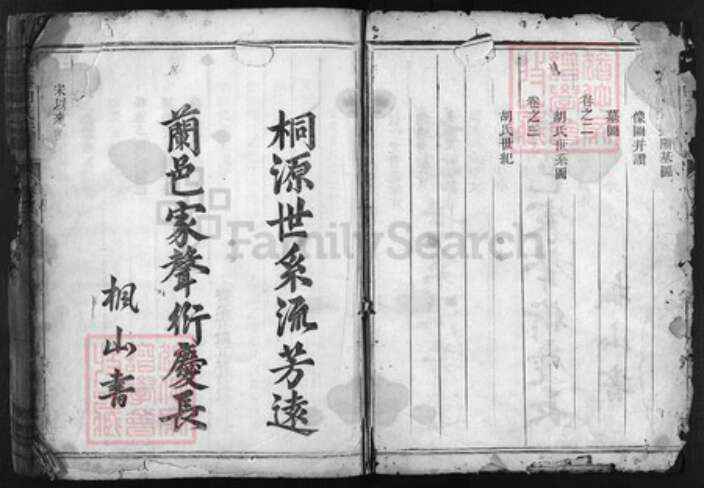 基圖
像圖并讚
墓圖
卷之二
胡氏世系圖
卷之三
胡氏世紀
桐源世系流芳遠
蘭邑家聲衍慶長
楓山書
宋以來
FamilySearch